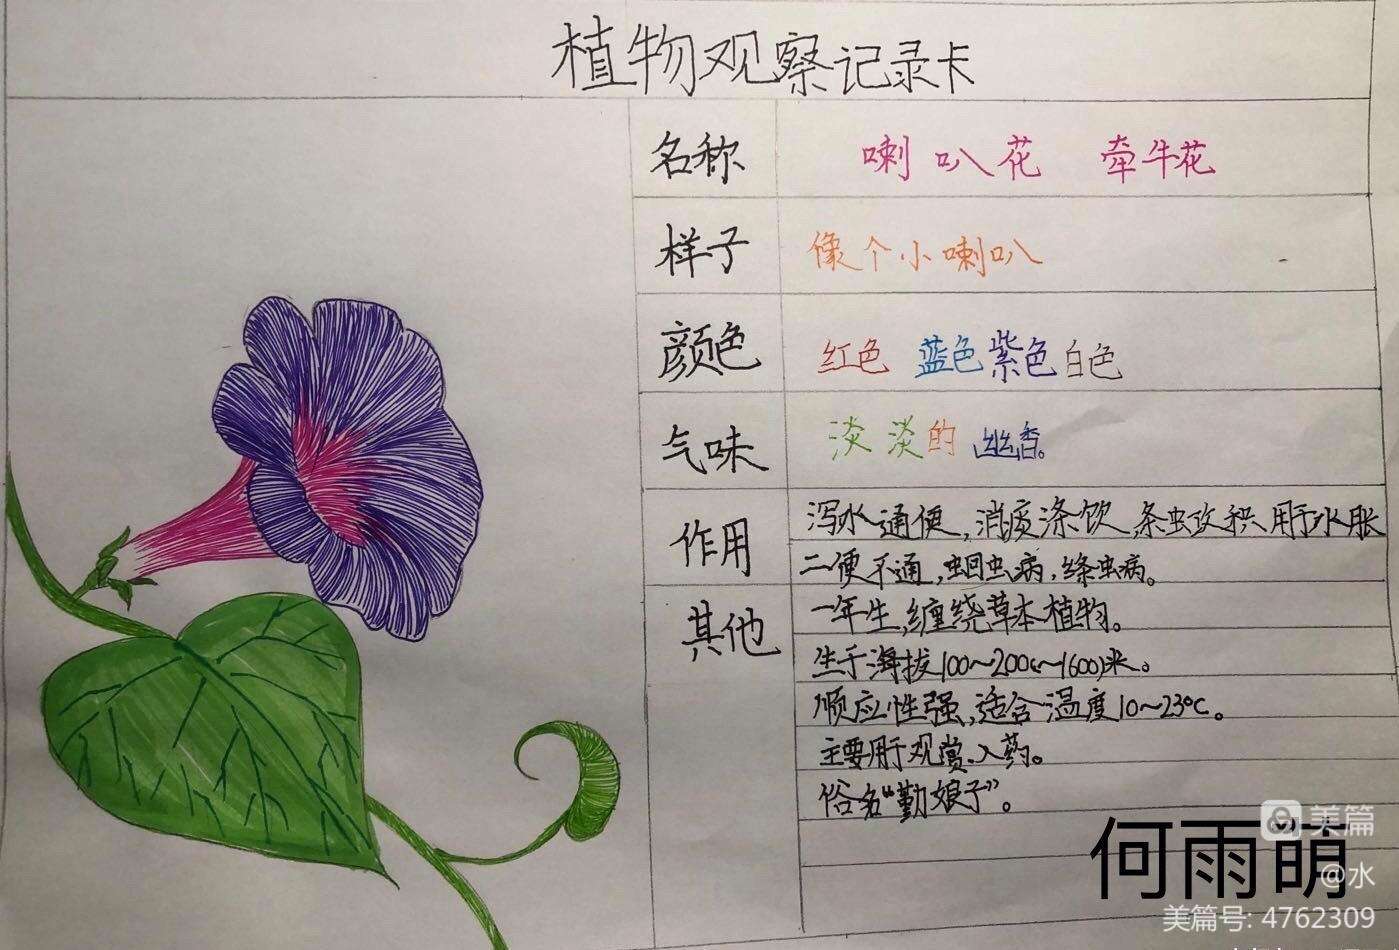 植物观察记录卡
名称 喇叭花 牵牛花
样子 像个小喇叭
颜色 红色 蓝色 紫色 白色
气味 淡淡的幽香。
作用 泻水通便,消痰涤饮、杀虫攻积用于水胀
二便不通,蛔虫病,绦虫病。
其他 一年生,缠绕草本植物。
生于海拔100~200(~1600)米。
顺应性强,适合温度10~23℃。
主要用于观赏、入药。
俗名“勤娘子”。
何雨萌
美篇
@水
美篇号: 4762309